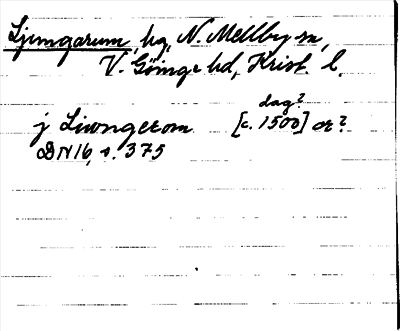 Ljungarum, hg, N. Mellby sn,
V. Göinge hd, Krist. l.
dag?
j Liwngerom [c. 1500] or?
DN 16, s. 375